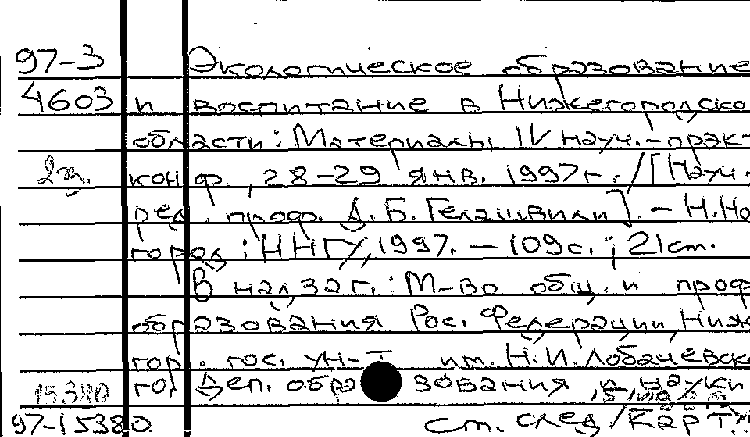 97-3 Экологическое образование
4603 и воспитание в Нижегородско
области: Материалы IV науч.-практ
2 эк. конф., 28-29 янв. 1997г. / [Науч.
ред. проф. Д. Б. Гелашвили]. - Н.Но
город: ННГУ, 1997. - 109с.; 21см.
В надзаг.: М-во общ. и проф
образования Рос. Федерации, Ниж
гор. гос. ун-т им. Н.И. Лобачевско
15380 го, Деп. образования и науки
97-15380 см. след / карт